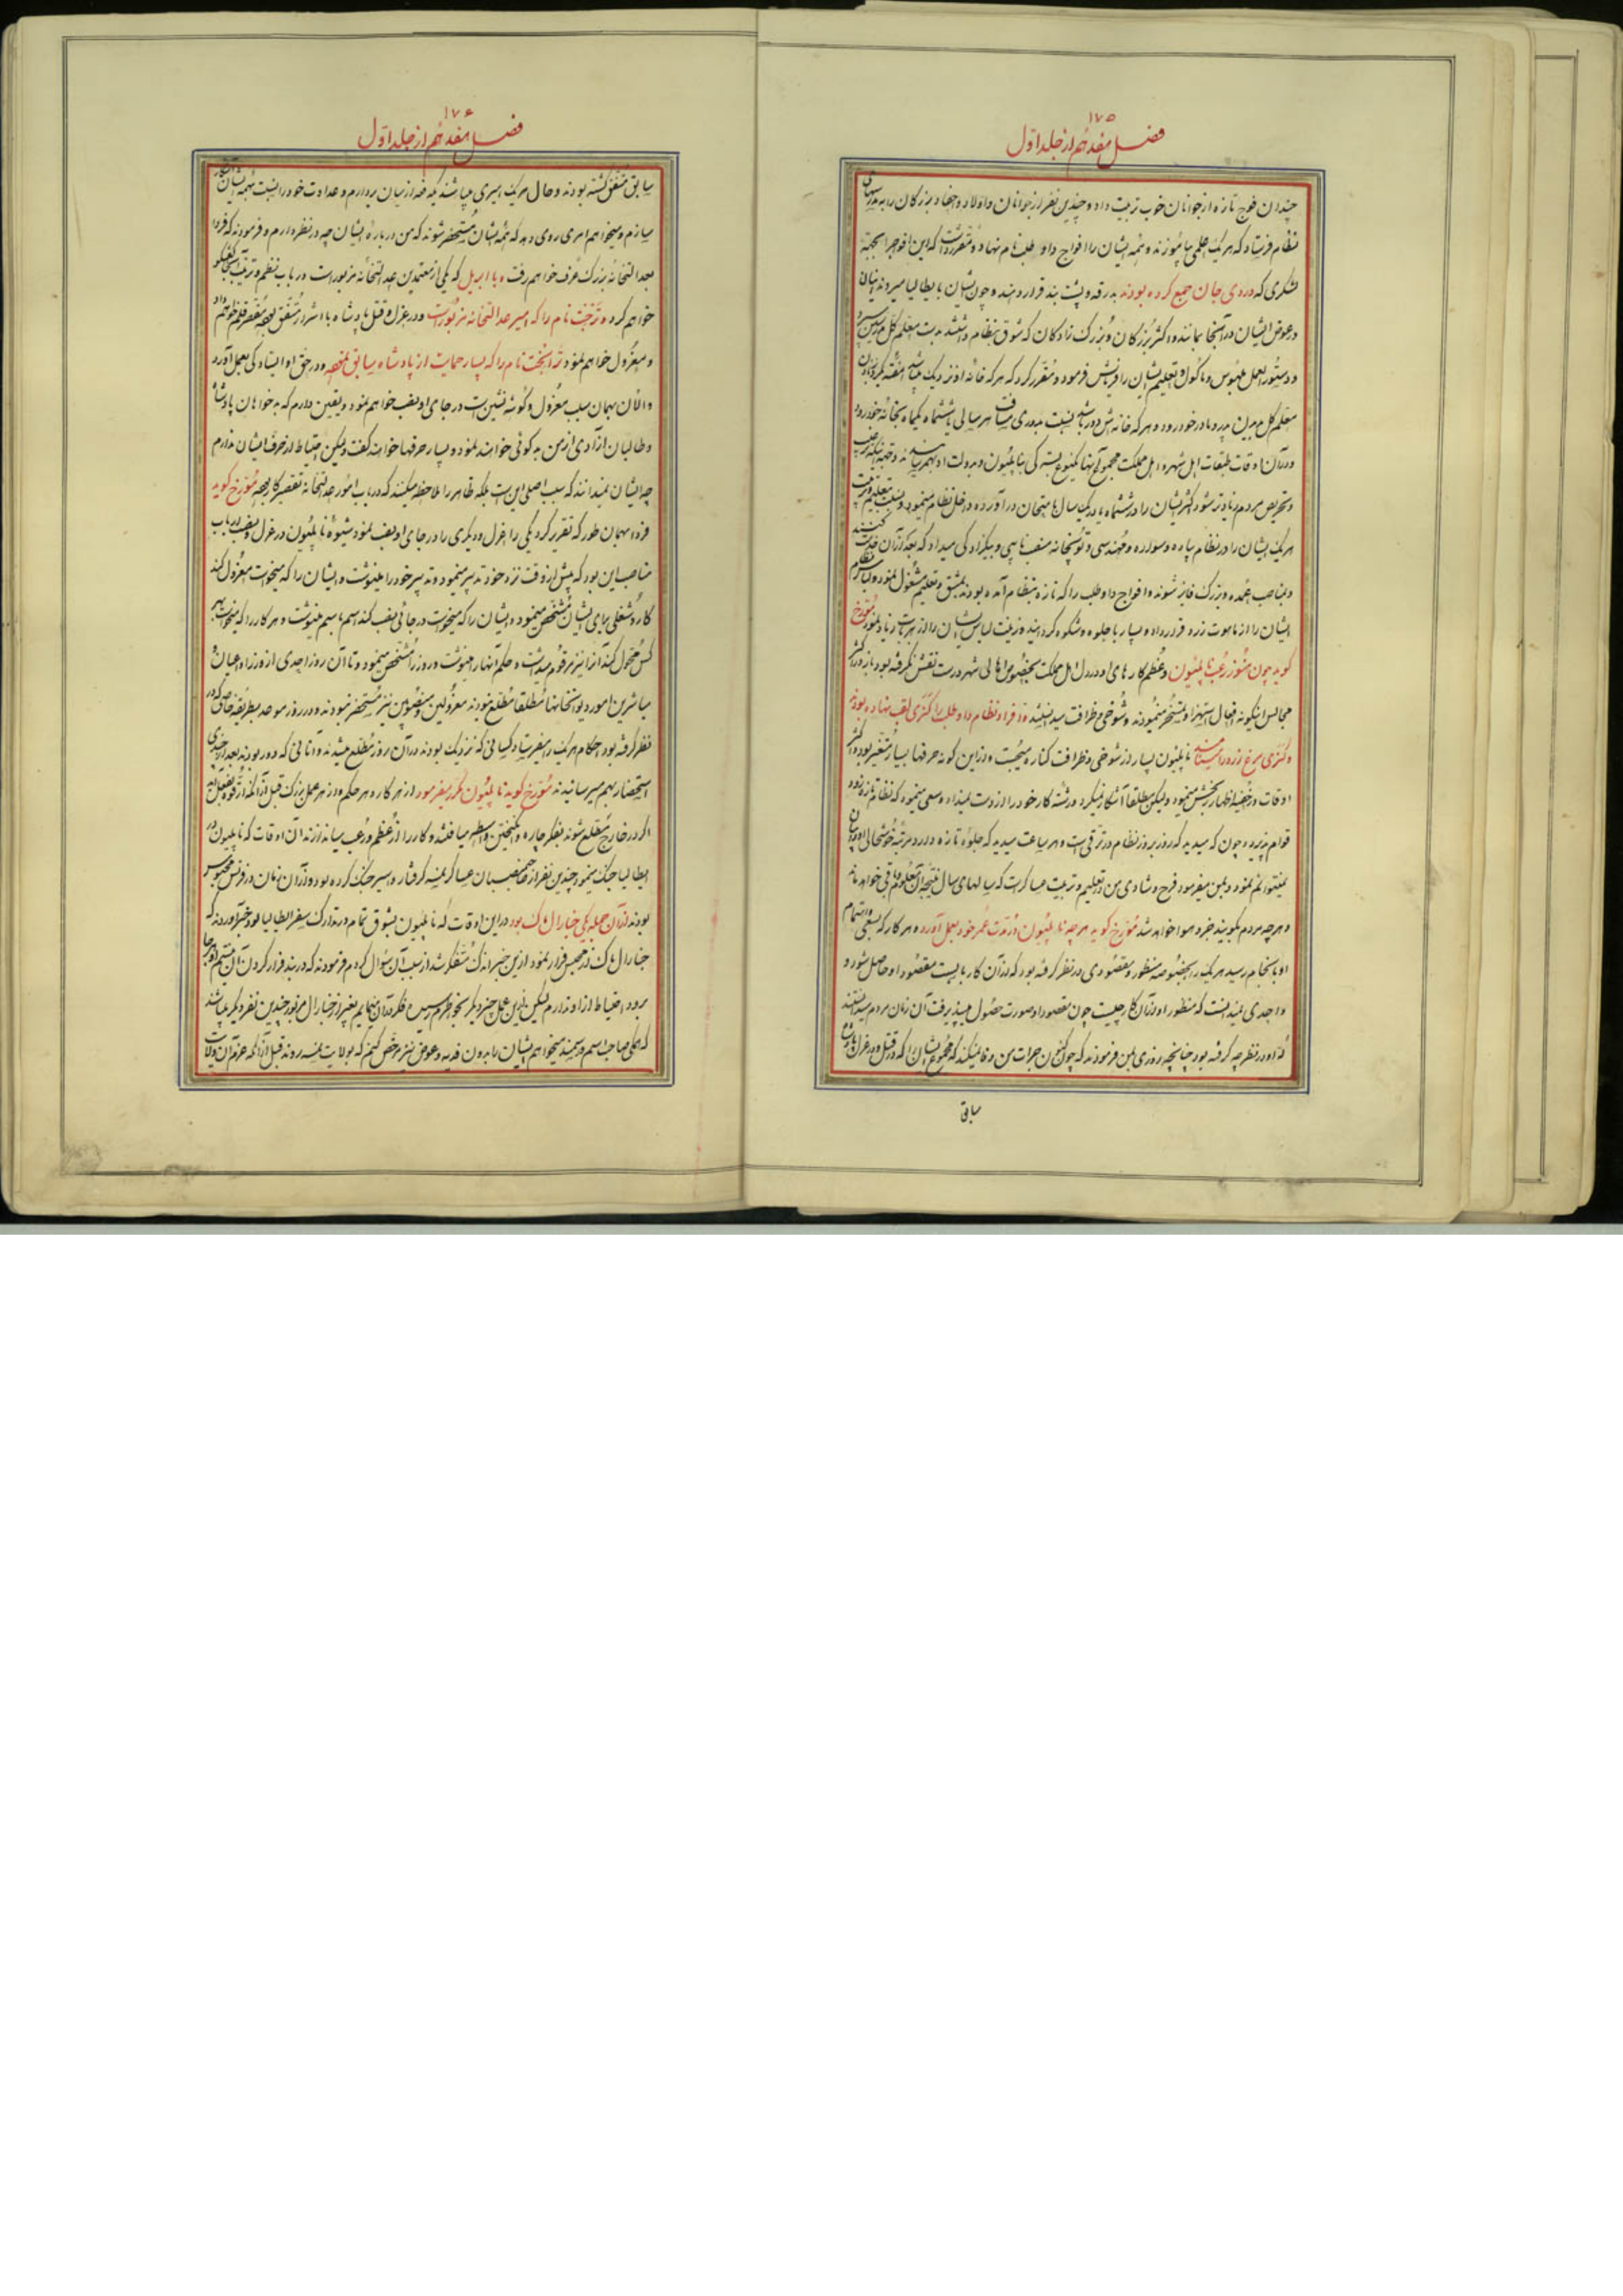 ۱۷۵
فصل هفدهم از جلد اول
چندان فوج تازه از جوانان خوب تربیت داد و چندین نفر از جوانان و اولاد و احفاد بزرگان را به مدرسهای
نظام فرستاد که هر یک علمی بیاموزند و همه ایشان را افواج داو طلب نام نهاد و مقرر داشت که این افواج را بجهة
لشکری که در دی جان جمع کرده بودند بدرقه و پشت بند قرار دهند و چون ایشان بایطالیا میروند اینان
در عوض ایشان در آنجا بمانند و اکثر بزرگان و بزرگ زادگان که شوق بنظام داشتند بدست معلم کل
و دستور العمل ملبوس و ماکول و تعلیم ایشان را فرمایش فرمود و مقرر کرد که هر که خانه او نزدیک باشد هفته
معلم کل بدیدن پدر و مادر خود رود و هر که خانه اش دور باشد بنسبت دوری مسافت هر سالی یا ششماه یکماه بخانه خود رود
و در آن اوقات طبقات اهل شهر و اهل مملکت
و تحریص مردم زیادتر شود اکثر ایشان را در ششماه یا در یک سال امتحان در آورده داخل نظام مینمود
هر یک ایشان را در نظام پیاده و سواره و مهندسی و توپخانه منصب نایبی و بیگزادگی میداد که بعد از آن خدمت کنند
و بمناصب عمده و بزرگ فایز شوند و افواج داوطلب را که تازه بنظام آمده بودند بمشق و تعلیم مشغول نمود و لباس نظام
ایشان را از ماهوت زرد قرار داده بسیار با جلوه و شکوه گردانید و زینت لباس ایشان را از زیاد نمود مورخ
گوید چون هنوز رعب ناپلیون و عظم کارهای او در دل اهل مملکت بخصوص اهالی شهر درست نقش نگرفته بود باز در اکثر
مجالس اینگونه افعال استهزا و تمسخر مینمودند و شوخی و ظرافت میدانستند و افراد نظام داوطلب را کنری لقب نهاده بودند
و کنری مرغ زرد را میگفتند ناپلیون بسیار از شوخی و ظرافت کناره میجست و از این گونه حرفها بسیار متغیر بود و اکثر
اوقات در خفیه اظهار رنجش مینمود ولیکن مطلقا آشکار نمیکرد و رشته کار خود را از دست نمیداد و سعی مینمود که نظام تازه زود
قوام پذیرد و چون که میدید که روز بروز نظام در ترقی است و هر ساعت میدید که جلوه تازه دارد و مرتبه خوشحالی او را بیان
نمیتوانم نمود و بمن میفرمود فرح و شادی من در تعلیم و تربیت عساکر است که سالهای سال نتیجه آن معلوم و باقی خواهد ماند
و هر چه مردم بگویند خرد و هوا خواهد شد مورخ گوید هر چه ناپلیون در مدت عمر خود بعمل آورده و هر کار که بسعی و اهتمام
او بانجام رسید هر یک را بخصوصه منظور و مقصودی در نظر گرفته بود که از آن کار بایست مقصود او حاصل شود و
احدی نمیدانست که منظور او از آن کار چیست چون مقصود او صورت حصول میپذیرفت آن زمان مردم میدانستند
که او در نظر چه گرفته بود چنانچه روزی بمن فرمودند که چون کنون جرات من وفا نمیکند که مجموع ایشان را که در قتل و در عزل پادشاه
سابق
۱۷۶
فصل هفدهم از جلد اول
سابق متفق گشته بودند و حال هر یک امیری میباشند یکدفعه از میان بردارم و عداوت خود را نسبت بهمه ایشان آشکار
سازم و میخواهم امری روی دهد که همه ایشان مستحضر شوند که من درباره ایشان چه در نظر دارم و فرمودند که فردا
بعدالتخانه بزرگ عرف خواهم رفت و با ابریل که یکی از معتمدین عدالتخانه مزبور است در باب نظم و ترتیب آنجا گفتگو
خواهم کرد و ترنخت نام را که امیر عدالتخانه مزبور است و در عزل و قتل پادشاه با اشرار متفق بوده مقصر قلم خواهم داد
و معزول خواهم نمود ترانخت نام را که بسیار حمایت از پادشاه سابق نموده و در حق او ایستادگی بعمل آورد
و الآن بهمان سبب معزول و گوشه نشین است در جای او نصب خواهم نمود و یقین دارم که بدخواهان پادشاه
و طالبان آزادی از من بدگوئی خواهند نمود و بسیار حرفها خواهند گفت ولیکن احتیاط از حرف ایشان ندارم
چه ایشان نمیدانند که سبب اصلی این است بلکه ظاهر را ملاحظه میکنند که در باب امور عدالتخانه تقصیرکار بوده مورخ گوید
فردا بهمان طور که تقریر کرد یکی را عزل و دیگری را در جای او نصب نمود شیوه ناپلیون در عزل و نصب ارباب
مناصب این بود که پیش از وقت نزد خود تدبیر مینمود و تدبیر خود را مینوشت و ایشان را که میخواست معزول کند
کار و شغلی برای ایشان مشخص مینمود و ایشان را که میخواست در جائی نصب کند اسم باسم مینوشت و هر کار را که میخواست بهر
کس محول کند آنرا نیز مرقوم میداشت و حکم آنها را مینوشت و روز را مشخص مینمود و تا آن روز احدی از وزرا و اعیان و
مباشرین امور دیوانخانها مطلقا مطلع نبودند معزولین و منصوبین نیز مستحضر نبودند و در روز موعد بطریقه خاصی که در
نظر گرفته بود احکام هر یک را میفرستاد کسانی که نزدیک بودند در آن روز مطلع میشدند و آنانی که دور بودند بعد از چندی
استحضار بهم میرسانیدند مورخ گوید ناپلیون مکرر میفرمود از هر کار و هر حکم و از هر عمل بزرگ قبل از آنکه از قوه بفعل آید
اگر در خارج مطلع شوند بفکر چاره و انگیختن واسطه میافتند و کار را از عظم و رعب میاندازند آن اوقات که ناپلیون در
ایطالیا جنگ مینمود چندین نفر از صاحبمنصبان عساکر نمسه گرفتار و اسیر جنگ کرده بود و آن زمان در فرنس محبوس
بودند از آن جمله یکی جنارال ماک بود در این اوقات که ناپلیون بشوق تمام در تدارک سفر ایطالیا بود خبر آوردند که
جنارال ماک از محبس فرار نمود از این خبر اندک متفکر شد از سبب آن سئوال کردم فرمودند که در بند فرار کردن آن نیستم هر جا
برود احتیاط از او ندارم لیکن از این عمل چیز دیگر بخواطرم رسیده فکر آن مینمایم بغیر از جنارال مزبور چندین نفر دیگر میباشند
که همگی صاحب اسم و رسمند میخواهم ایشان را بدون فدیه و عوض نیز مرخص کنیم که بولایت نمسه روند قبل از آنکه عزم آن ولایت